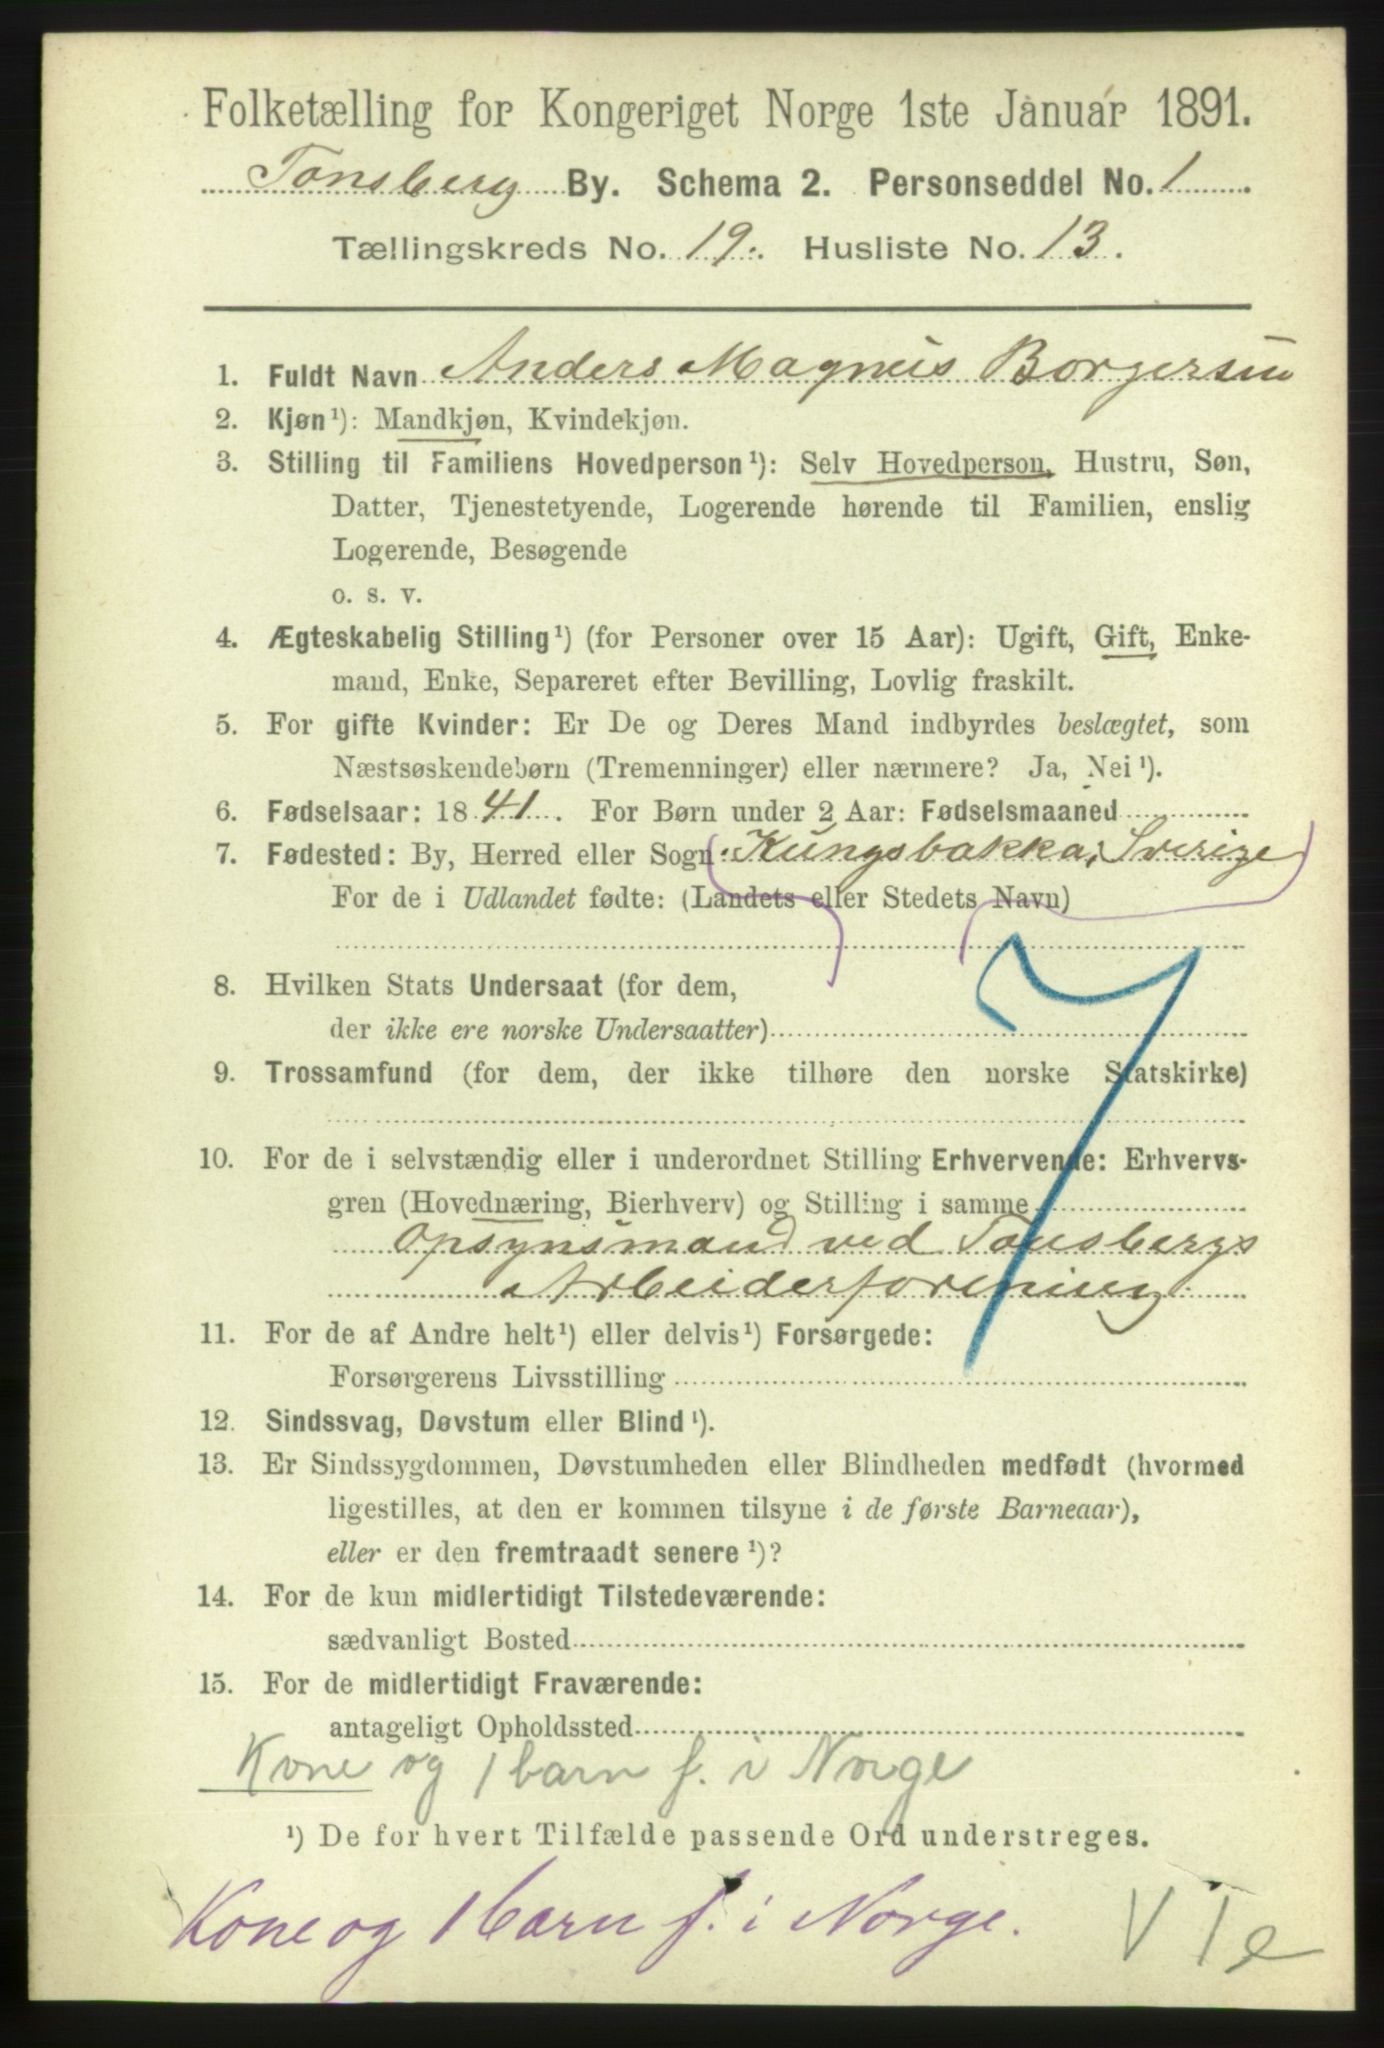 Folketælling for Kongeriget Norge 1ste Januar 1891.
Tønsberg By. Schema 2. Personseddel No. 1
Tællingskreds No. 19. Husliste No. 13.
1. Fuldt Navn Anders Magnus Borgersen
2. Kjøn¹): Mandkjøn, Kvindekjøn.
3. Stilling til Familiens Hovedperson¹): Selv Hovedperson, Hustru, Søn,
Datter, Tjenestetyende, Logerende hørende til Familien, enslig
Logerende, Besøgende
o. s. v.
4. Ægteskabelig Stilling¹) (for Personer over 15 Aar): Ugift, Gift, Enke-
mand, Enke, Separeret efter Bevilling, Lovlig fraskilt.
5. For gifte Kvinder: Er De og Deres Mand indbyrdes beslægtet, som
Næstsøskendebørn (Tremenninger) eller nærmere? Ja, Nei¹).
6. Fødselsaar: 1841. For Børn under 2 Aar: Fødselsmaaned
7. Fødested: By, Herred eller Sogn: Kungsbakka, Sverige
For de i Udlandet fødte: (Landets eller Stedets Navn)
8. Hvilken Stats Undersaat (for dem,
der ikke ere norske Undersaatter)
9. Trossamfund (for dem, der ikke tilhøre den norske Statskirke)
7
10. For de i selvstændig eller i underordnet Stilling Erhvervende: Erhvervs-
gren (Hovednæring, Bierhverv) og Stilling i samme
Opsynsmand ved Tønsbergs
Arbeiderforening
11. For de af Andre helt¹) eller delvis¹) Forsørgede:
Forsørgerens Livsstilling
12. Sindssvag, Døvstum eller Blind¹).
13. Er Sindssygdommen, Døvstumheden eller Blindheden medfødt (hvormed
ligestilles, at den er kommen tilsyne i de første Barneaar),
eller er den fremtraadt senere¹)?
14. For de kun midlertidigt Tilstedeværende:
sædvanligt Bosted
15. For de midlertidigt Fraværende:
antageligt Opholdssted
Kone og 1 barn f. i Norge
¹) De for hvert Tilfælde passende Ord understreges.
Kone og 1 barn f. i Norge.